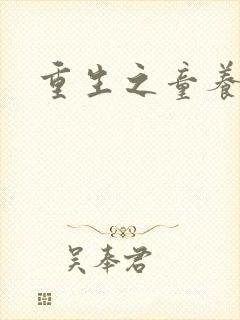 重生之童養
吴奉君